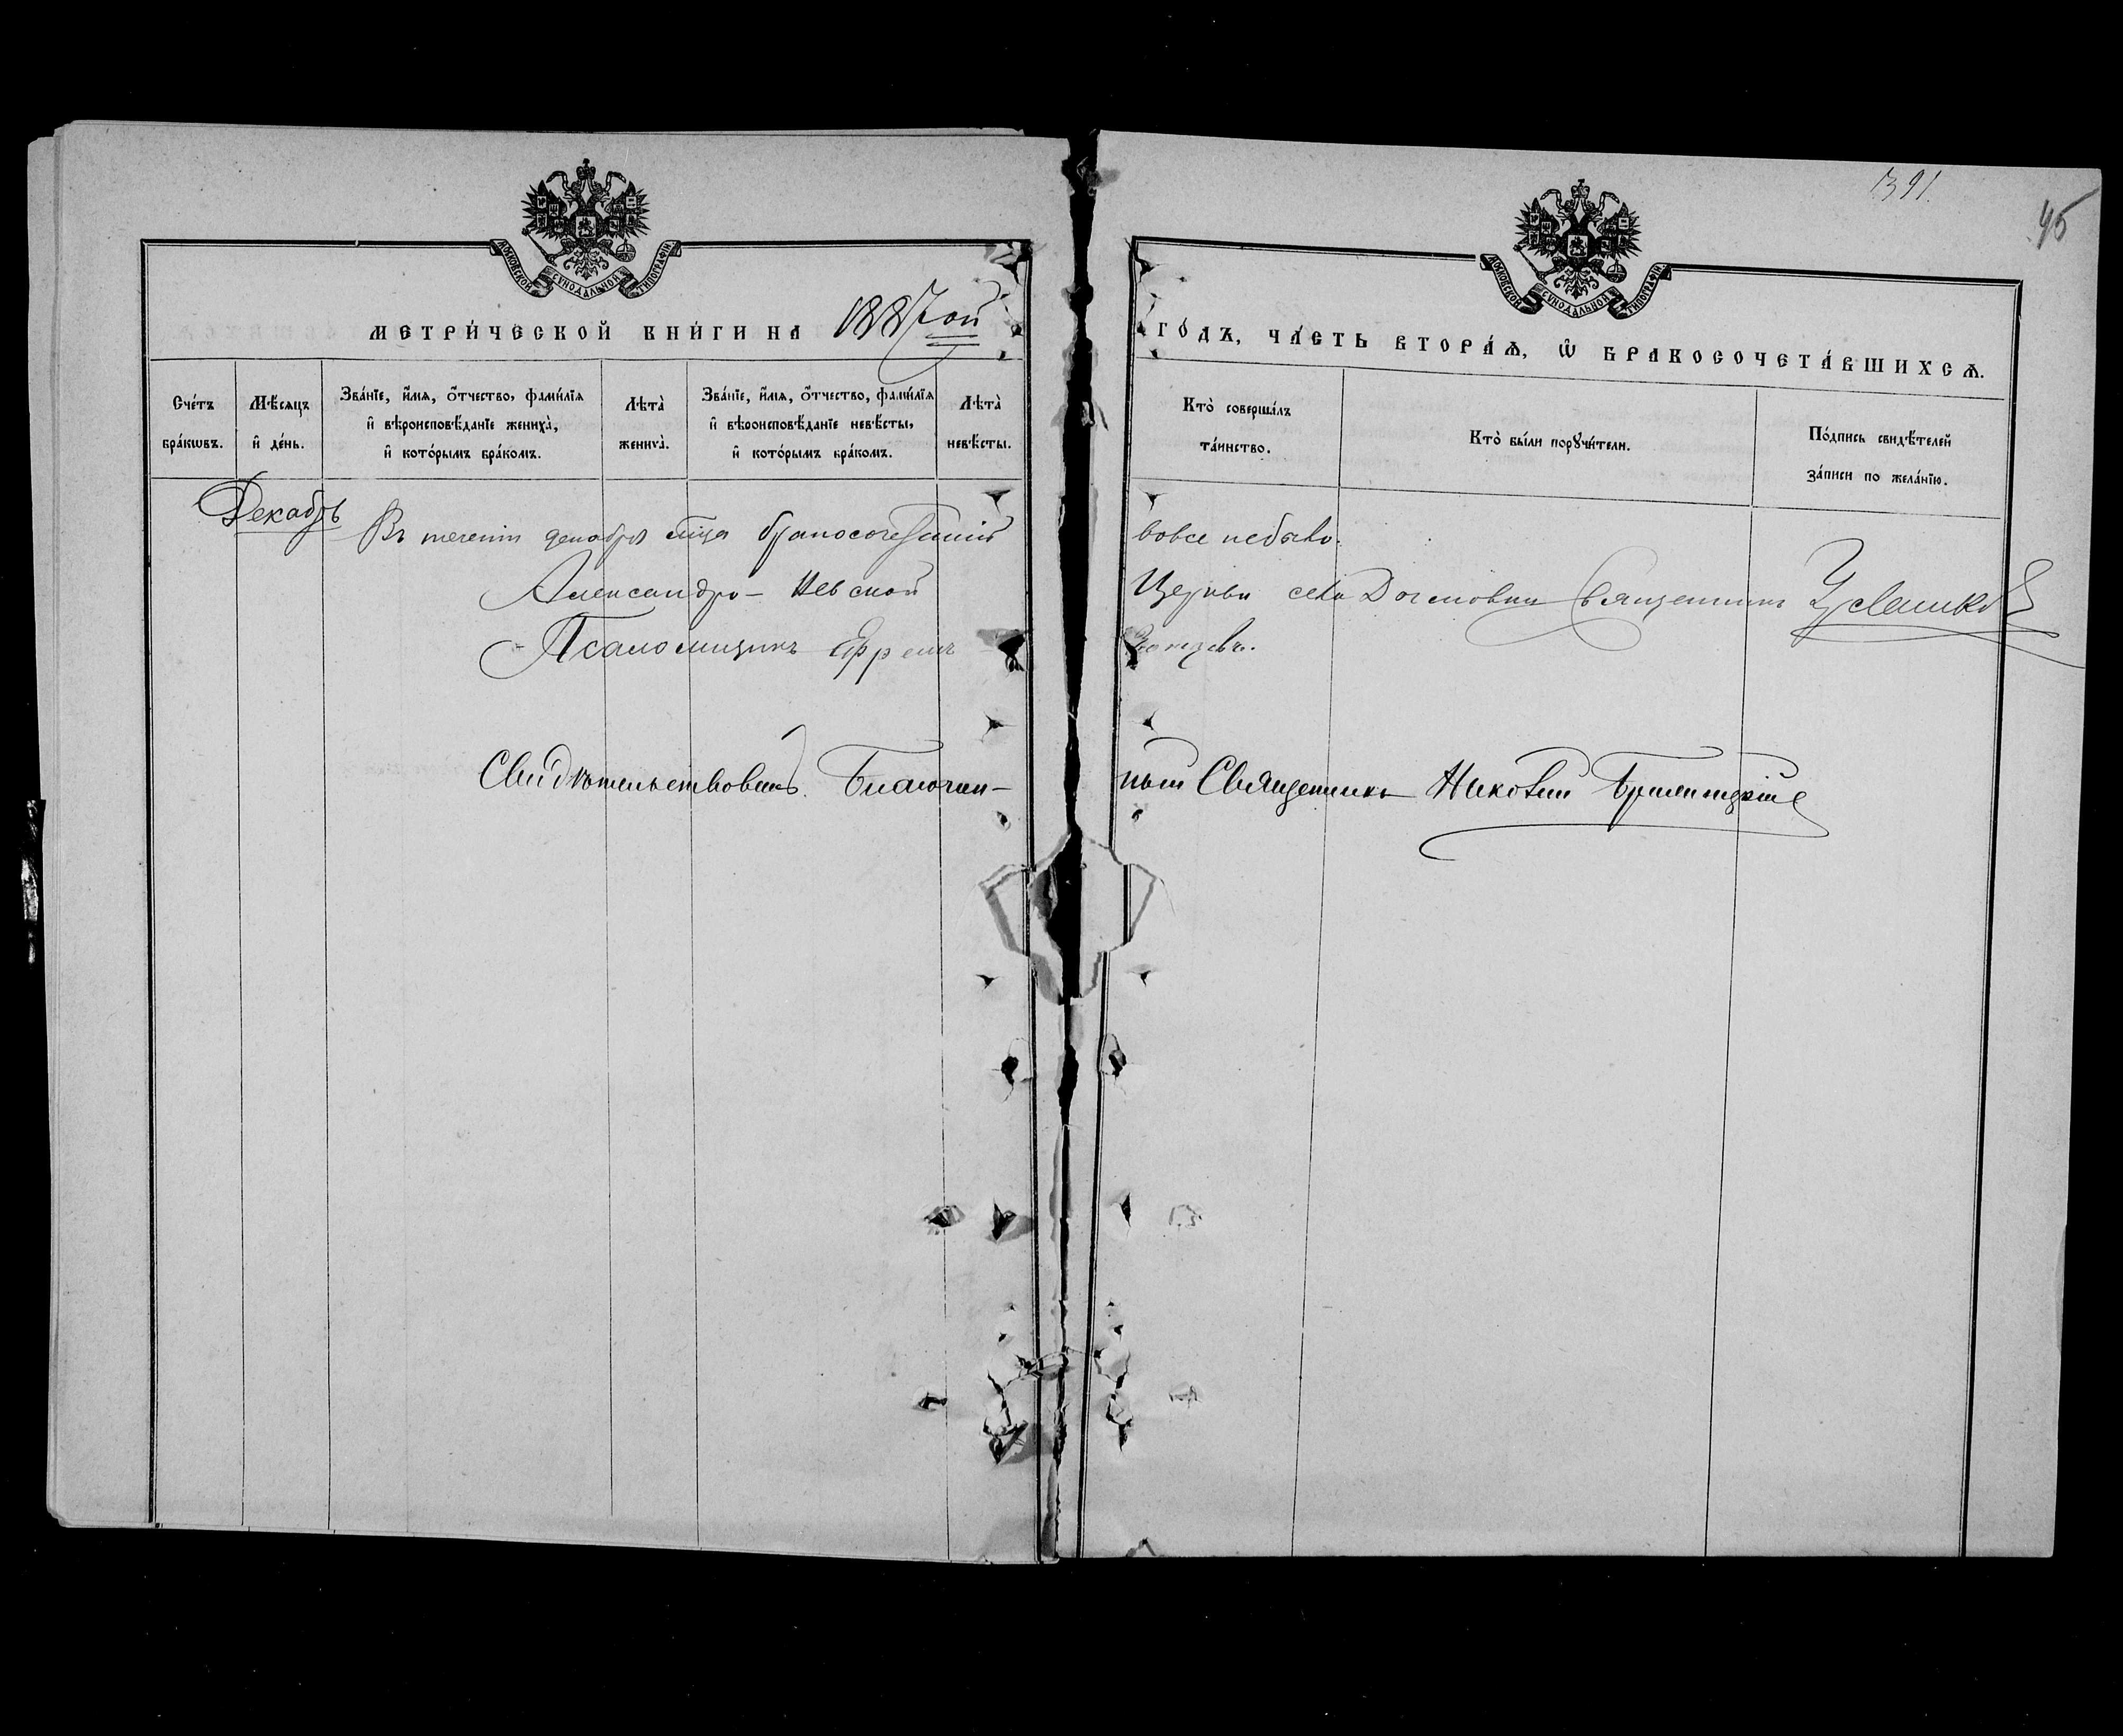 391.
45
МОСКОВСКОЙ СѴНОДАЛЬНОЙ ТИПОГРАФІИ.
МОСКОВСКОЙ СѴНОДАЛЬНОЙ ТИПОГРАФІИ.
МЕТРИ́ЧЕСКОЙ КНИ́ГИ НА 1887ой ГО́ДЪ, ЧА́СТЬ ВТОРА́Ѧ, Ѽ БРАКОСОЧЕТА́ВШИХСѦ.
Сче́тъ бра́кѡвъ.
Мѣ́сяцъ и҆ де́нь.
Зва́нїе, и҆́мя, ѻ҆́тчество, фами́лїя и҆ вѣроисповѣ́данїе жениха̀, и҆ кото́рымъ бра́комъ.
Лѣта̀ жениха̀.
Зва́нїе, и҆́мя, ѻ҆́тчество, фами́лїя и҆ вѣроисповѣ́данїе невѣ́сты, и҆ кото́рымъ бра́комъ.
Лѣта̀ невѣ́сты.
Кто̀ соверши́лъ та́инство.
Кто̀ бы́ли порꙋчи́тели.
По́дпись свидѣ́телей за́писи по жела́нїю.
Декабрь
Въ теченіи декабря мца бракосочетаній вовсе небыло.
Александро-Невской Церкви села Священникъ
Псаломщикъ Ефремъ
Свидѣтельствовалъ Благочин-
ный Священникъ